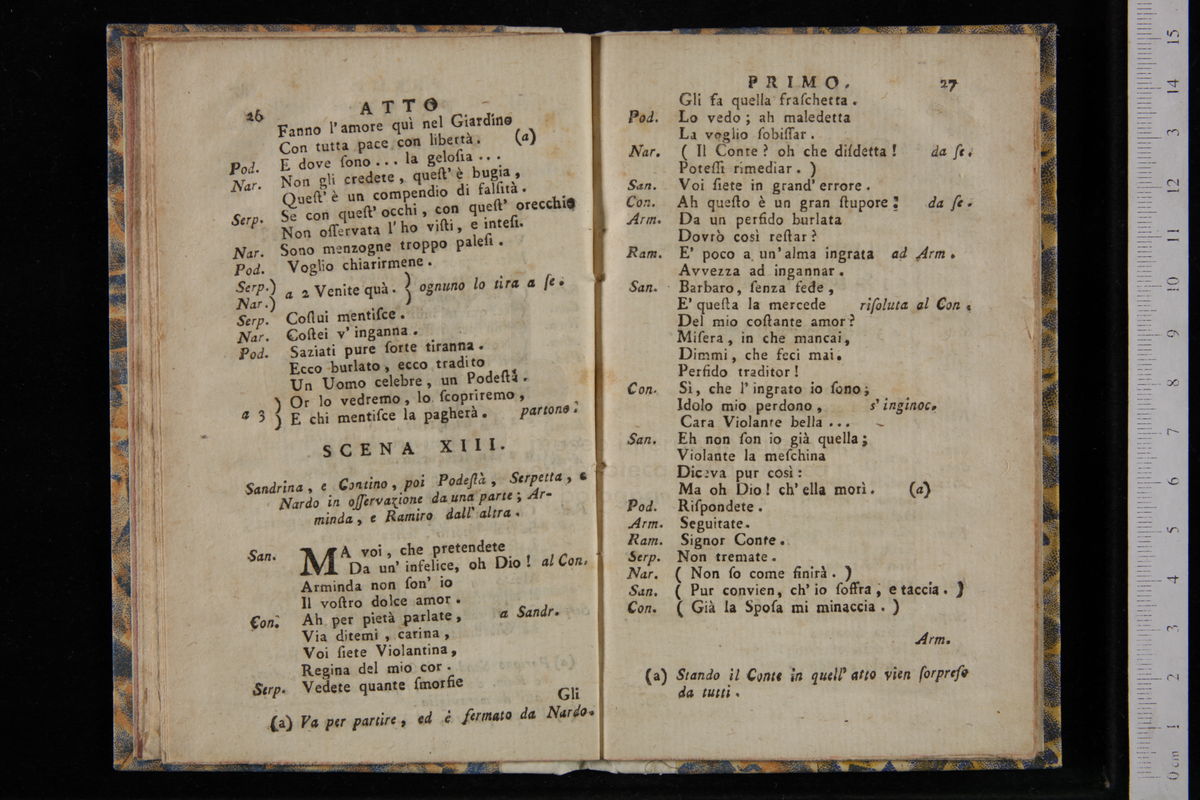 26
ATTO
Fanno l'amore quì nel Giardino
Con tutta pace con libertà. (a)
Pod. E dove ſono... la geloſia...
Nar. Non gli credete, queſt' è bugia,
Queſt' è un compendio di falſità.
Serp. Se con queſt' occhi, con queſt' orecchie
Non oſſervata l'ho viſti, e inteſi.
Nar. Sono menzogne troppo paleſi.
Pod. Voglio chiarirmene.
Serp.) a 2 Venite quà. } ognuno lo tira a ſe.
Nar.)
Serp. Coſtui mentiſce.
Nar. Coſtei v'inganna.
Pod. Saziati pure ſorte tiranna.
Ecco burlato, ecco tradito
Un Uomo celebre, un Podeſtà.
a 3 } Or lo vedremo, lo ſcopriremo,
E chi mentiſce la pagherà. partono.
SCENA XIII.
Sandrina, e Contino, poi Podeſtà, Serpetta, e
Nardo in oſſervazione da una parte; Ar-
minda, e Ramiro dall' altra.
San. MA voi, che pretendete
Da un' infelice, oh Dio! al Con.
Arminda non ſon' io
Il voſtro dolce amor.
Con. Ah per pietà parlate, a Sandr.
Via ditemi, carina,
Voi ſiete Violantina,
Regina del mio cor.
Serp. Vedete quante ſmorfie
Gli
(a) Va per partire, ed è fermato da Nardo.
PRIMO. 27
Gli fa quella fraſchetta.
Pod. Lo vedo; ah maledetta
La voglio ſobiſſar.
Nar. ( Il Conte? oh che diſdetta! da ſe.
Poteſſi rimediar. )
San. Voi ſiete in grand' errore.
Con. Ah queſto è un gran ſtupore! da ſe.
Arm. Da un perfido burlata
Dovrò così reſtar?
Ram. E' poco a un' alma ingrata ad Arm.
Avvezza ad ingannar.
San. Barbaro, ſenza fede,
E' queſta la mercede riſoluta al Con.
Del mio coſtante amor?
Miſera, in che mancai,
Dimmi, che feci mai.
Perfido traditor!
Con. Sì, che l'ingrato io ſono;
Idolo mio perdono, s'inginoc.
Cara Violante bella...
San. Eh non ſon io già quella;
Violante la meſchina
Diceva pur così:
Ma oh Dio! ch' ella morì. (a)
Pod. Riſpondete.
Arm. Seguitate.
Ram. Signor Conte.
Serp. Non tremate.
Nar. ( Non ſo come finirà. )
San. ( Pur convien, ch' io ſoffra, e taccia. )
Con. ( Già la Spoſa mi minaccia. )
Arm.
(a) Stando il Conte in quell' atto vien ſorpreſo
da tutti.
0 cm 1 2 3 4 5 6 7 8 9 10 11 12 13 14 15